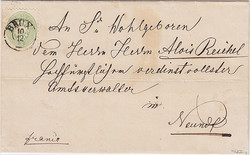 BRUX
10/12
An Sr Wohlgeboren
Dem Herrn Herrn Alois Reichel
verdienstvollster
Amtsverwalter
in
Neundf
franco